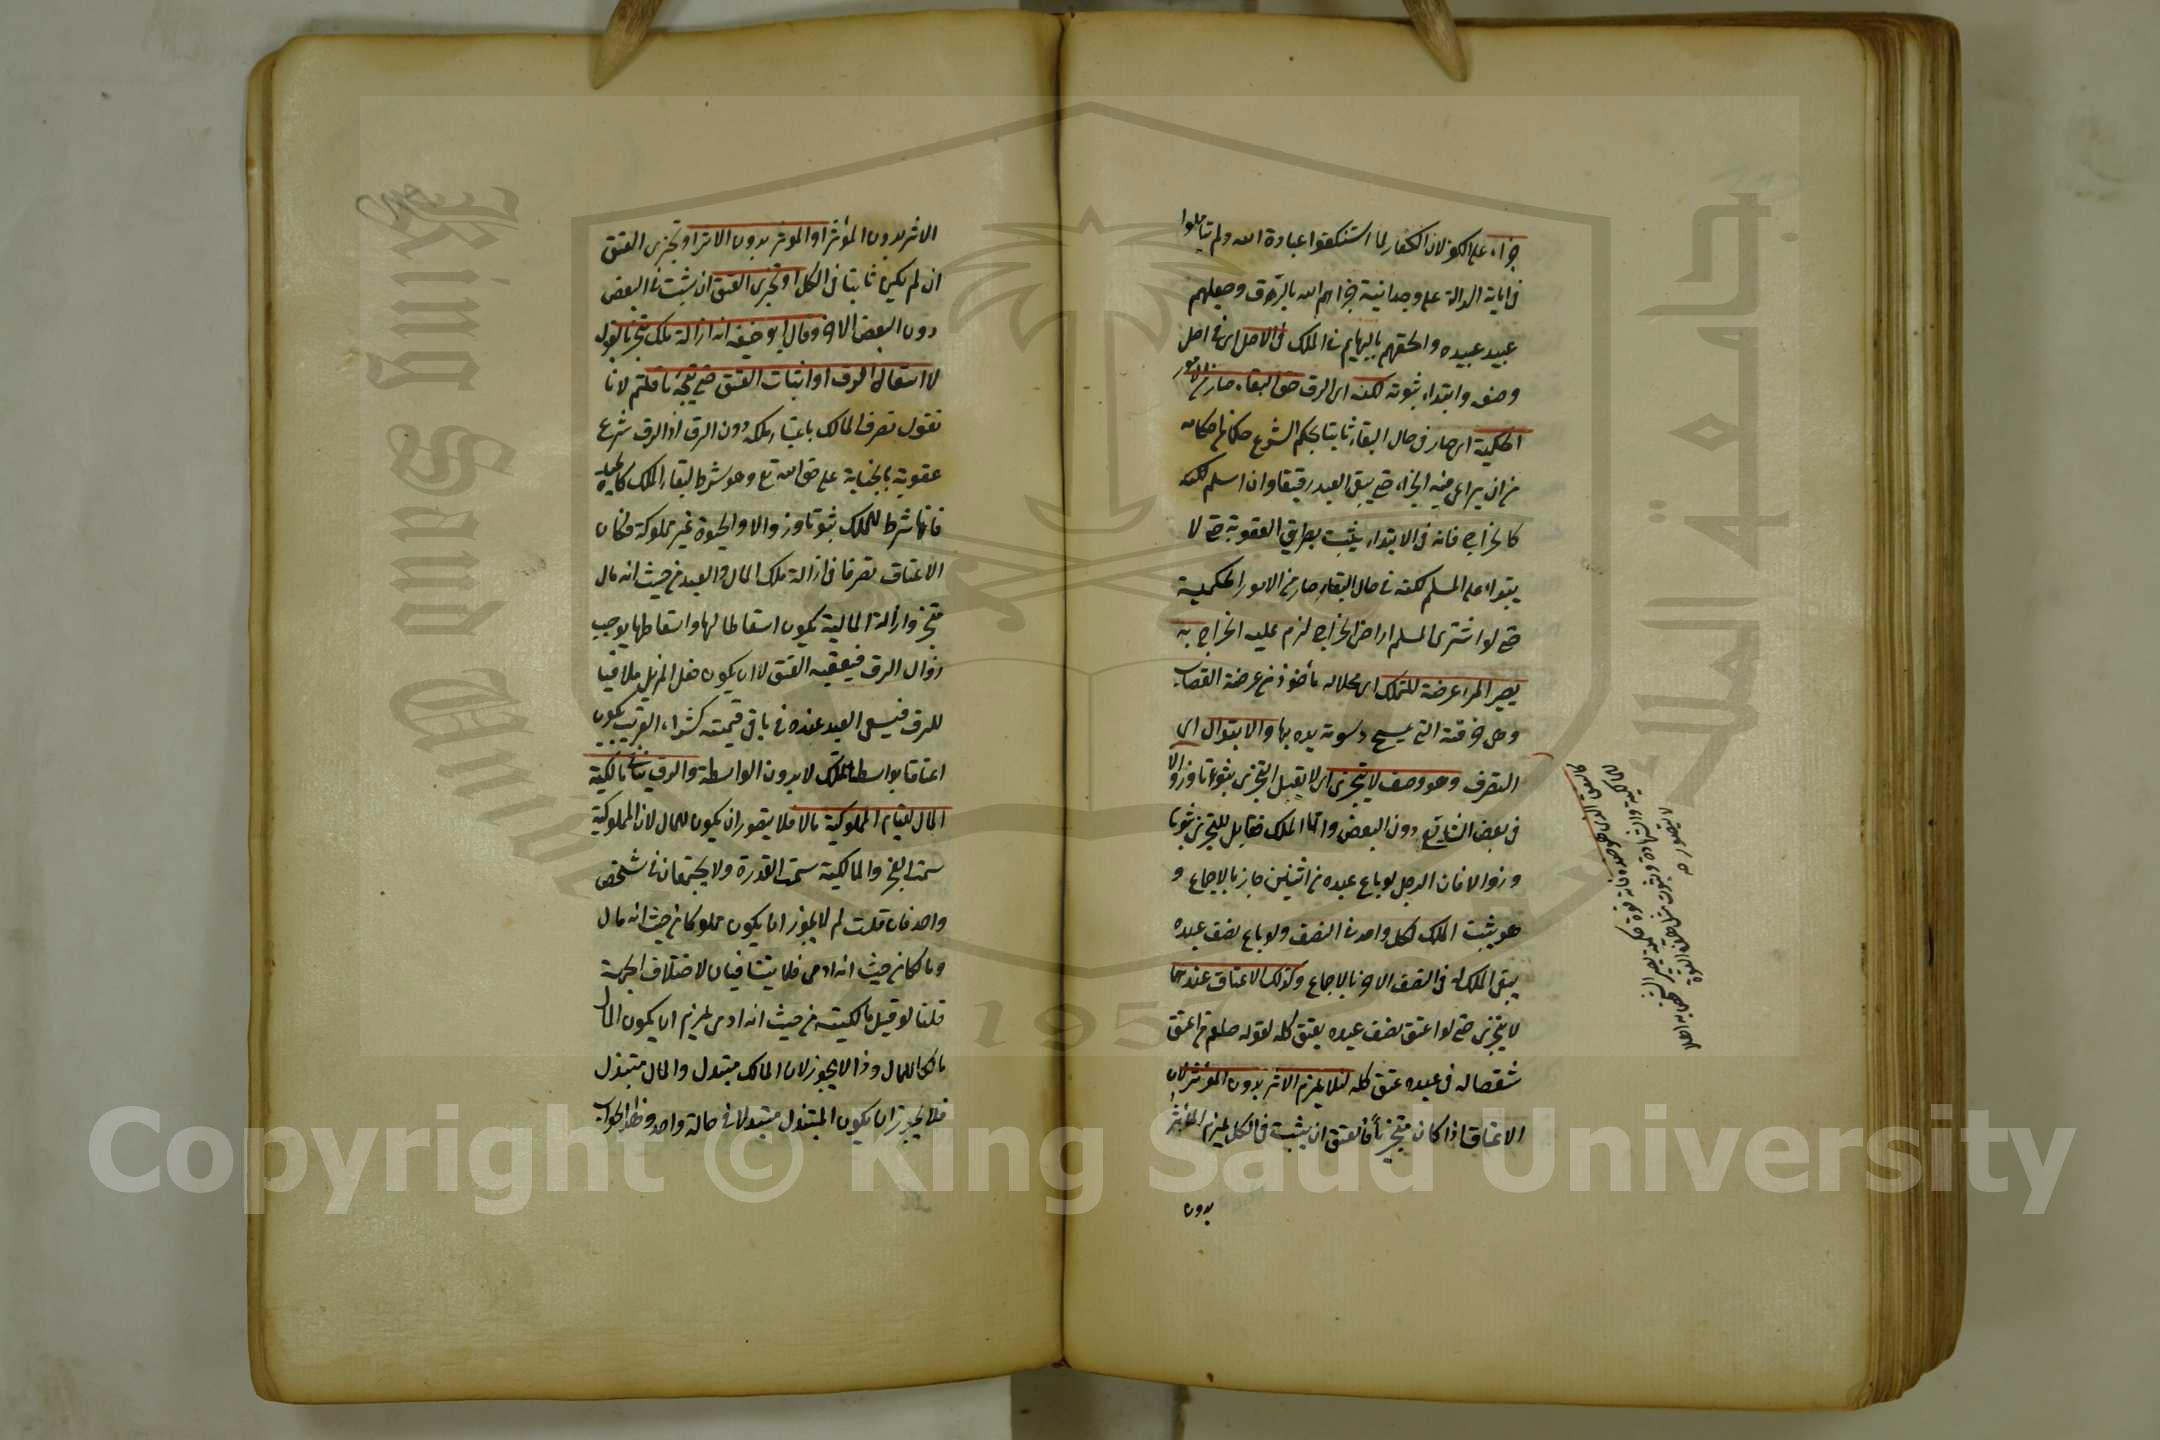 جزاء على الكفر لان الكفار لما استنكفوا عبادة الله ولم يتأملوا
في اياته الدالة على وحدانيته جزاهم الله بالرق وجعلهم
عبيد عبيده والحقهم بالبهايم في الملك في الاصل اي في اصل
وضعه وابتداء ثبوته لكنه اي الرق حق البقاء صار من الامور
الحكمية اي صار في حال البقاء ثابتا بحكم الشرع حكما من احكامه
من ان يراعى فيه الجزاء حتى يبقى العبد رقيقا وان اسلم لكنه
كالخراج فانه في الابتداء يثبت بطريق العقوبة حتى لا
يبتداء على المسلم لكنه في حال البقاء صار من الامور الحكمية
حتى لو اشترى المسلم اراضي الخراج لزم عليه الخراج به
يصير المرء عرضة للتملك اي محلا له مأخوذ من عرضة القصاب
وهي خرقته التي يمسح دسومة يده بها والابتذال اي
التصرف وهو وصف لا يتجزى اي لا يقبل التجزي ثبوتا وزوالا
في بعض الشايع دون البعض واما الملك فقابل للتجزي ثبوتا
وزوالا فان الرجل لو باع عبده من اثنين جاز بالاجماع و
هو يثبت الملك لكل واحد في النصف ولو باع نصف عبده
يبقى الملك له في النصف الاخر بالاجماع وكذلك الاعتاق عندهما
لا يتجزى حتى لو اعتق نصف عبده يعتق كله لقوله صلعم من اعتق
شقصا له في عبده عتق كله لئلا يلزم الاثر بدون المؤثر لان
الاعتاق اذا كان متجزيا فالعتق ان يثبت في الكل يلزم الاثر
بدون
الاثر بدون المؤثر او المؤثر بدون الاثر او تجزى العتق
ان لم يكن ثابتا في الكل او تجزى العتق ان يثبت في البعض
دون البعض الاخر وقال ابو حنيفة انه ازالة ملك متجز بالقول
لا اسقاط الرق او اثبات العتق حتى يتجه ما قلتم لانا
نقول تصرف المالك باعتبار ملكه دون الرق اذ الرق شرع
عقوبة بالجناية على حق الله تع وهو شرط لبقاء الملك كالحياة
فانها شرط للملك ثبوتا وزوالا والحيوة غير مملوكة فكان
الاعتاق تصرفا في ازالة ملك المال والعبد من حيث انه مال
متجز وازالة المالية يكون اسقاطا لها واسقاطها يوجب
زوال الرق فيعقبه العتق لا ان يكون فعل المزيل ملاقيا
للرق فيسعى العبد عنده في باقي قيمته كشراء القريب يكون
اعتاقا بواسطة الملك لا بدون الواسطة والرق ينافي مالكية
المال لقيام المملوكية مالا فلا يتصور ان يكون للمال لان المملوكية
سمت العجز والمالكية سمت القدرة ولا يجتمعان في شخص
واحد فان قلت لم لا يجوز ان يكون مملوكا من حيث انه مال
ومالكا من حيث انه ادمي فلا يتنافيان لاختلاف الجهة
قلنا لو قيل بمالكيته من حيث انه ادمي يلزم ان يكون المال
مالكا للمال وذا لا يجوز لان المالك مبتذل والمال مبتذل
فلا يجوز ان يكون المبتذل مبتذلا في حالة واحدة
جامعة الملك سعود
King Saud University
1957
Copyright © King Saud University